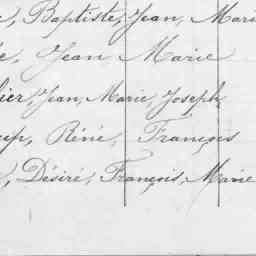 , Baptiste, Jean, Mari
e, Jean Marie
lier, Jean, Marie, Joseph
oup, Réné, François
, Désiré, François, Marie